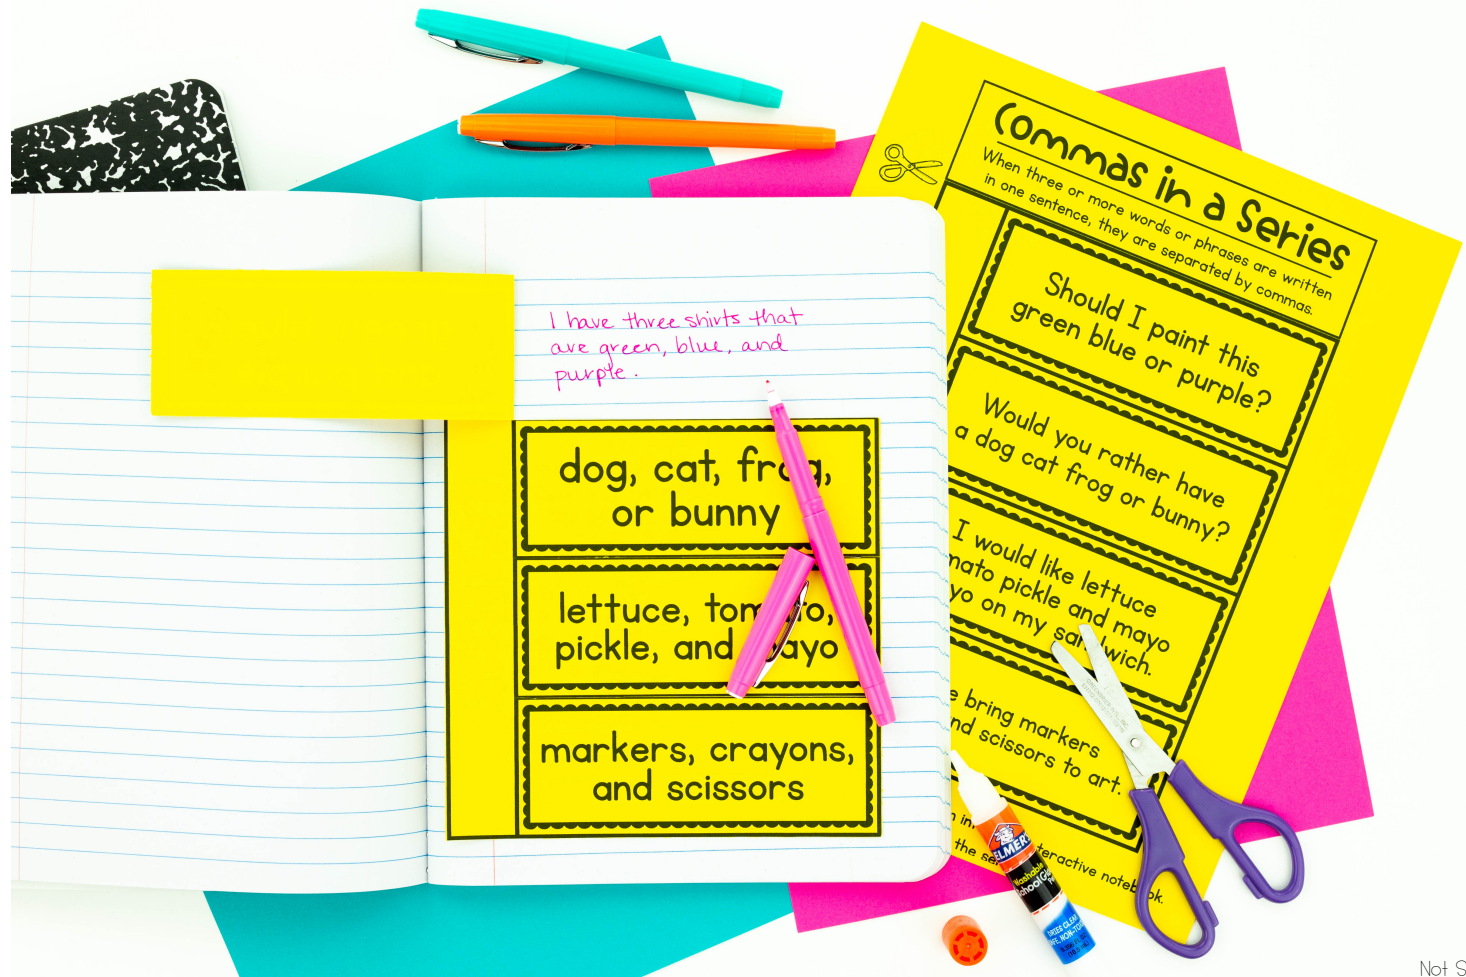 I have three shirts that
are green, blue, and
purple.
dog, cat, frog,
or bunny
lettuce, tomato,
pickle, and mayo
markers, crayons,
and scissors
Commas in a Series
When three or more words or phrases are written
in one sentence, they are separated by commas.
Should I paint this
green blue or purple?
Would you rather have
a dog cat frog or bunny?
I would like lettuce
pickle and mayo
on my sandwich.
bring markers
scissors to art.
the
notebook.
ELMER'S
Washable
School Glue
DRIES CLEAR
Not S